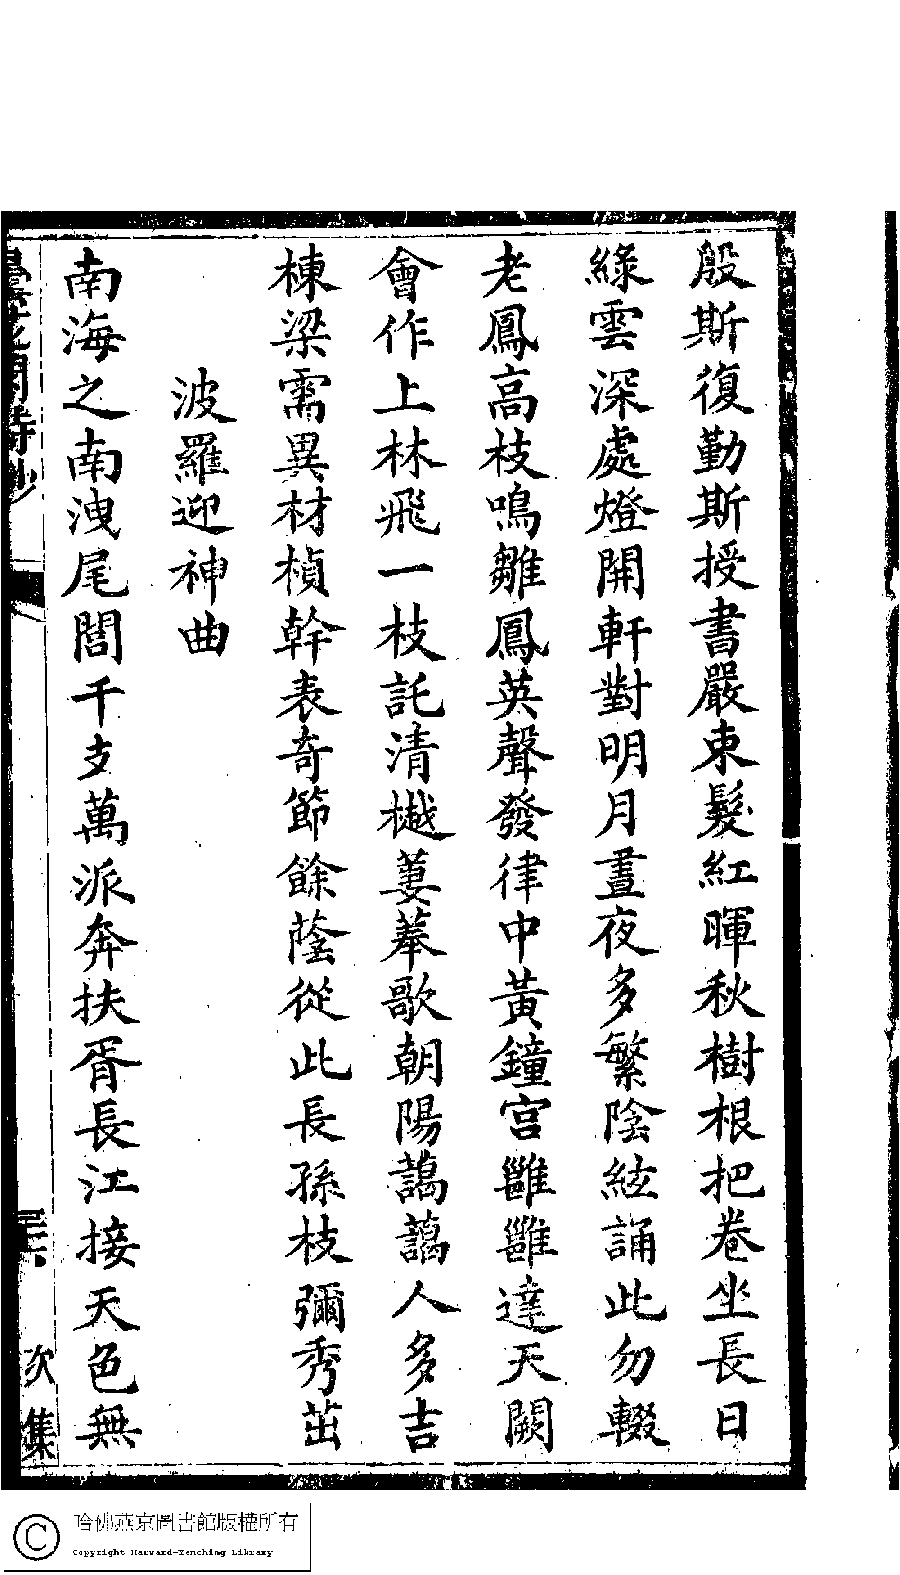 殷斯復勤斯授書嚴束髮紅暉秋樹根把卷坐長日
綠雲深處燈開軒對明月晝夜多繁陰絃誦此勿輟
老鳳高枝鳴雛鳳英聲發律中黃鐘宮雝雝達天闕
會作上林飛一枝託清樾萋菶歌朝陽藹藹人多吉
棟梁需異材楨幹表奇節餘蔭從此長孫枝彌秀茁
波羅迎神曲
南海之南洩尾閭千支萬派奔扶胥長江接天色無
詩鈔
次集
哈佛燕京圖書館版權所有
Copyright Harvard-Yenching Library